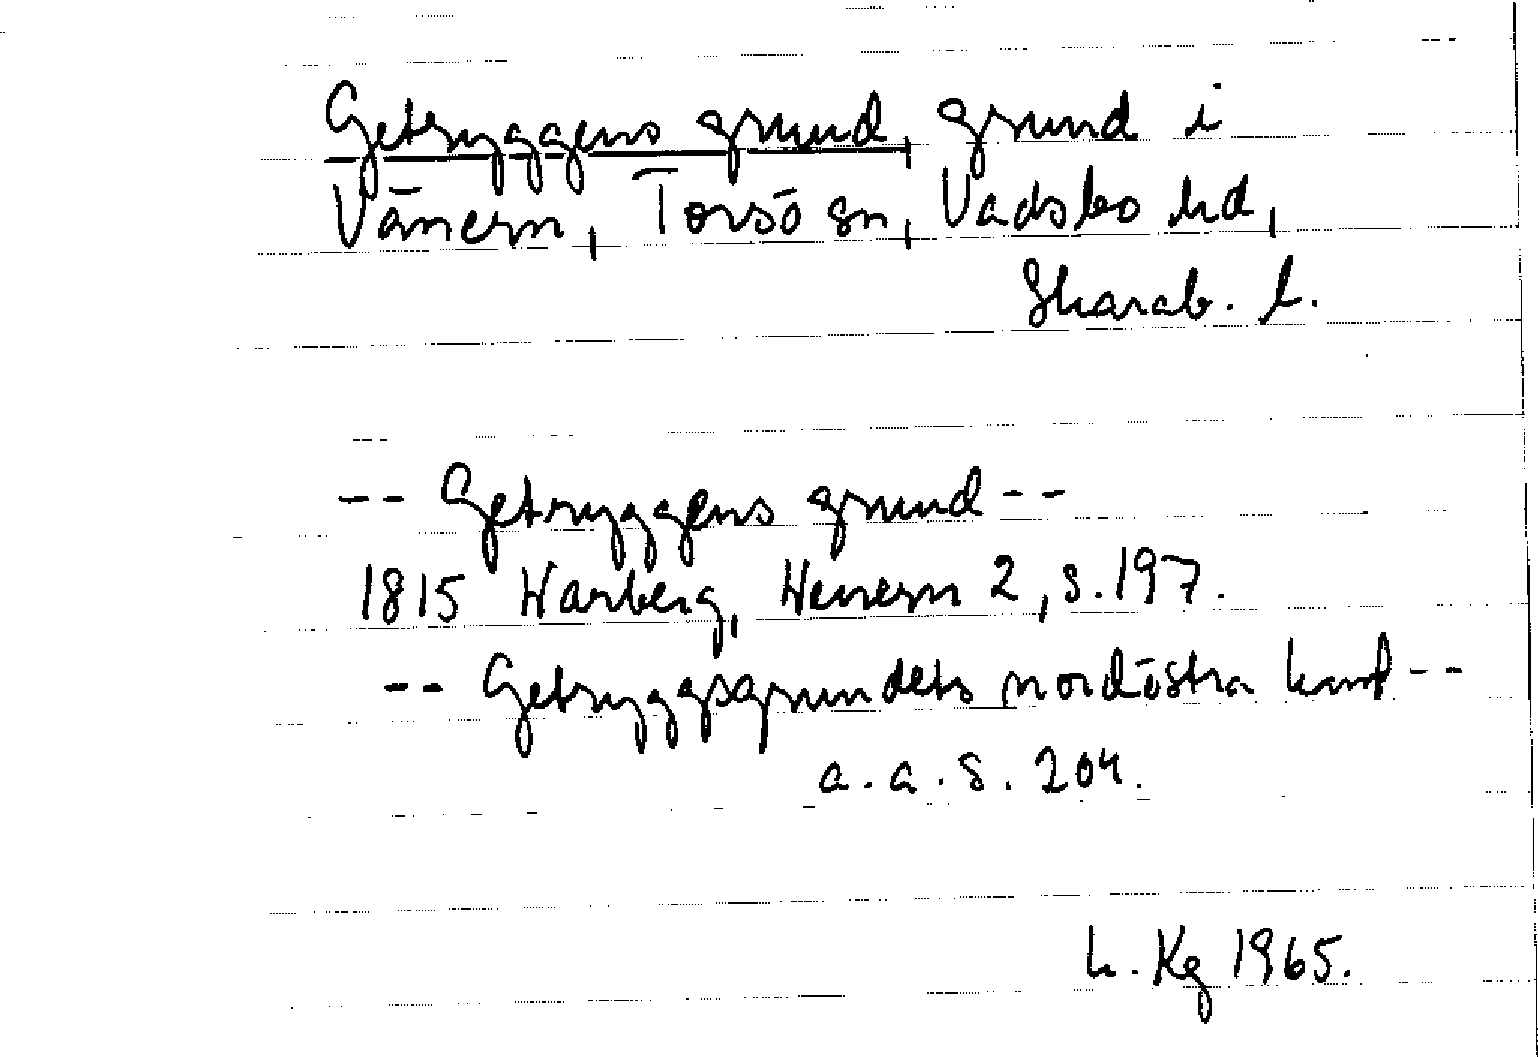 Getryggens grund, grund i
Vänern, Torsö sn, Vadsbo hd,
Skarab. l.
-- Getryggens grund --
1815 Warberg, Wenern 2, s. 197.
-- Getryggsgrundets nordöstra kant --
a. a. s. 204.
h. Kg 1965.